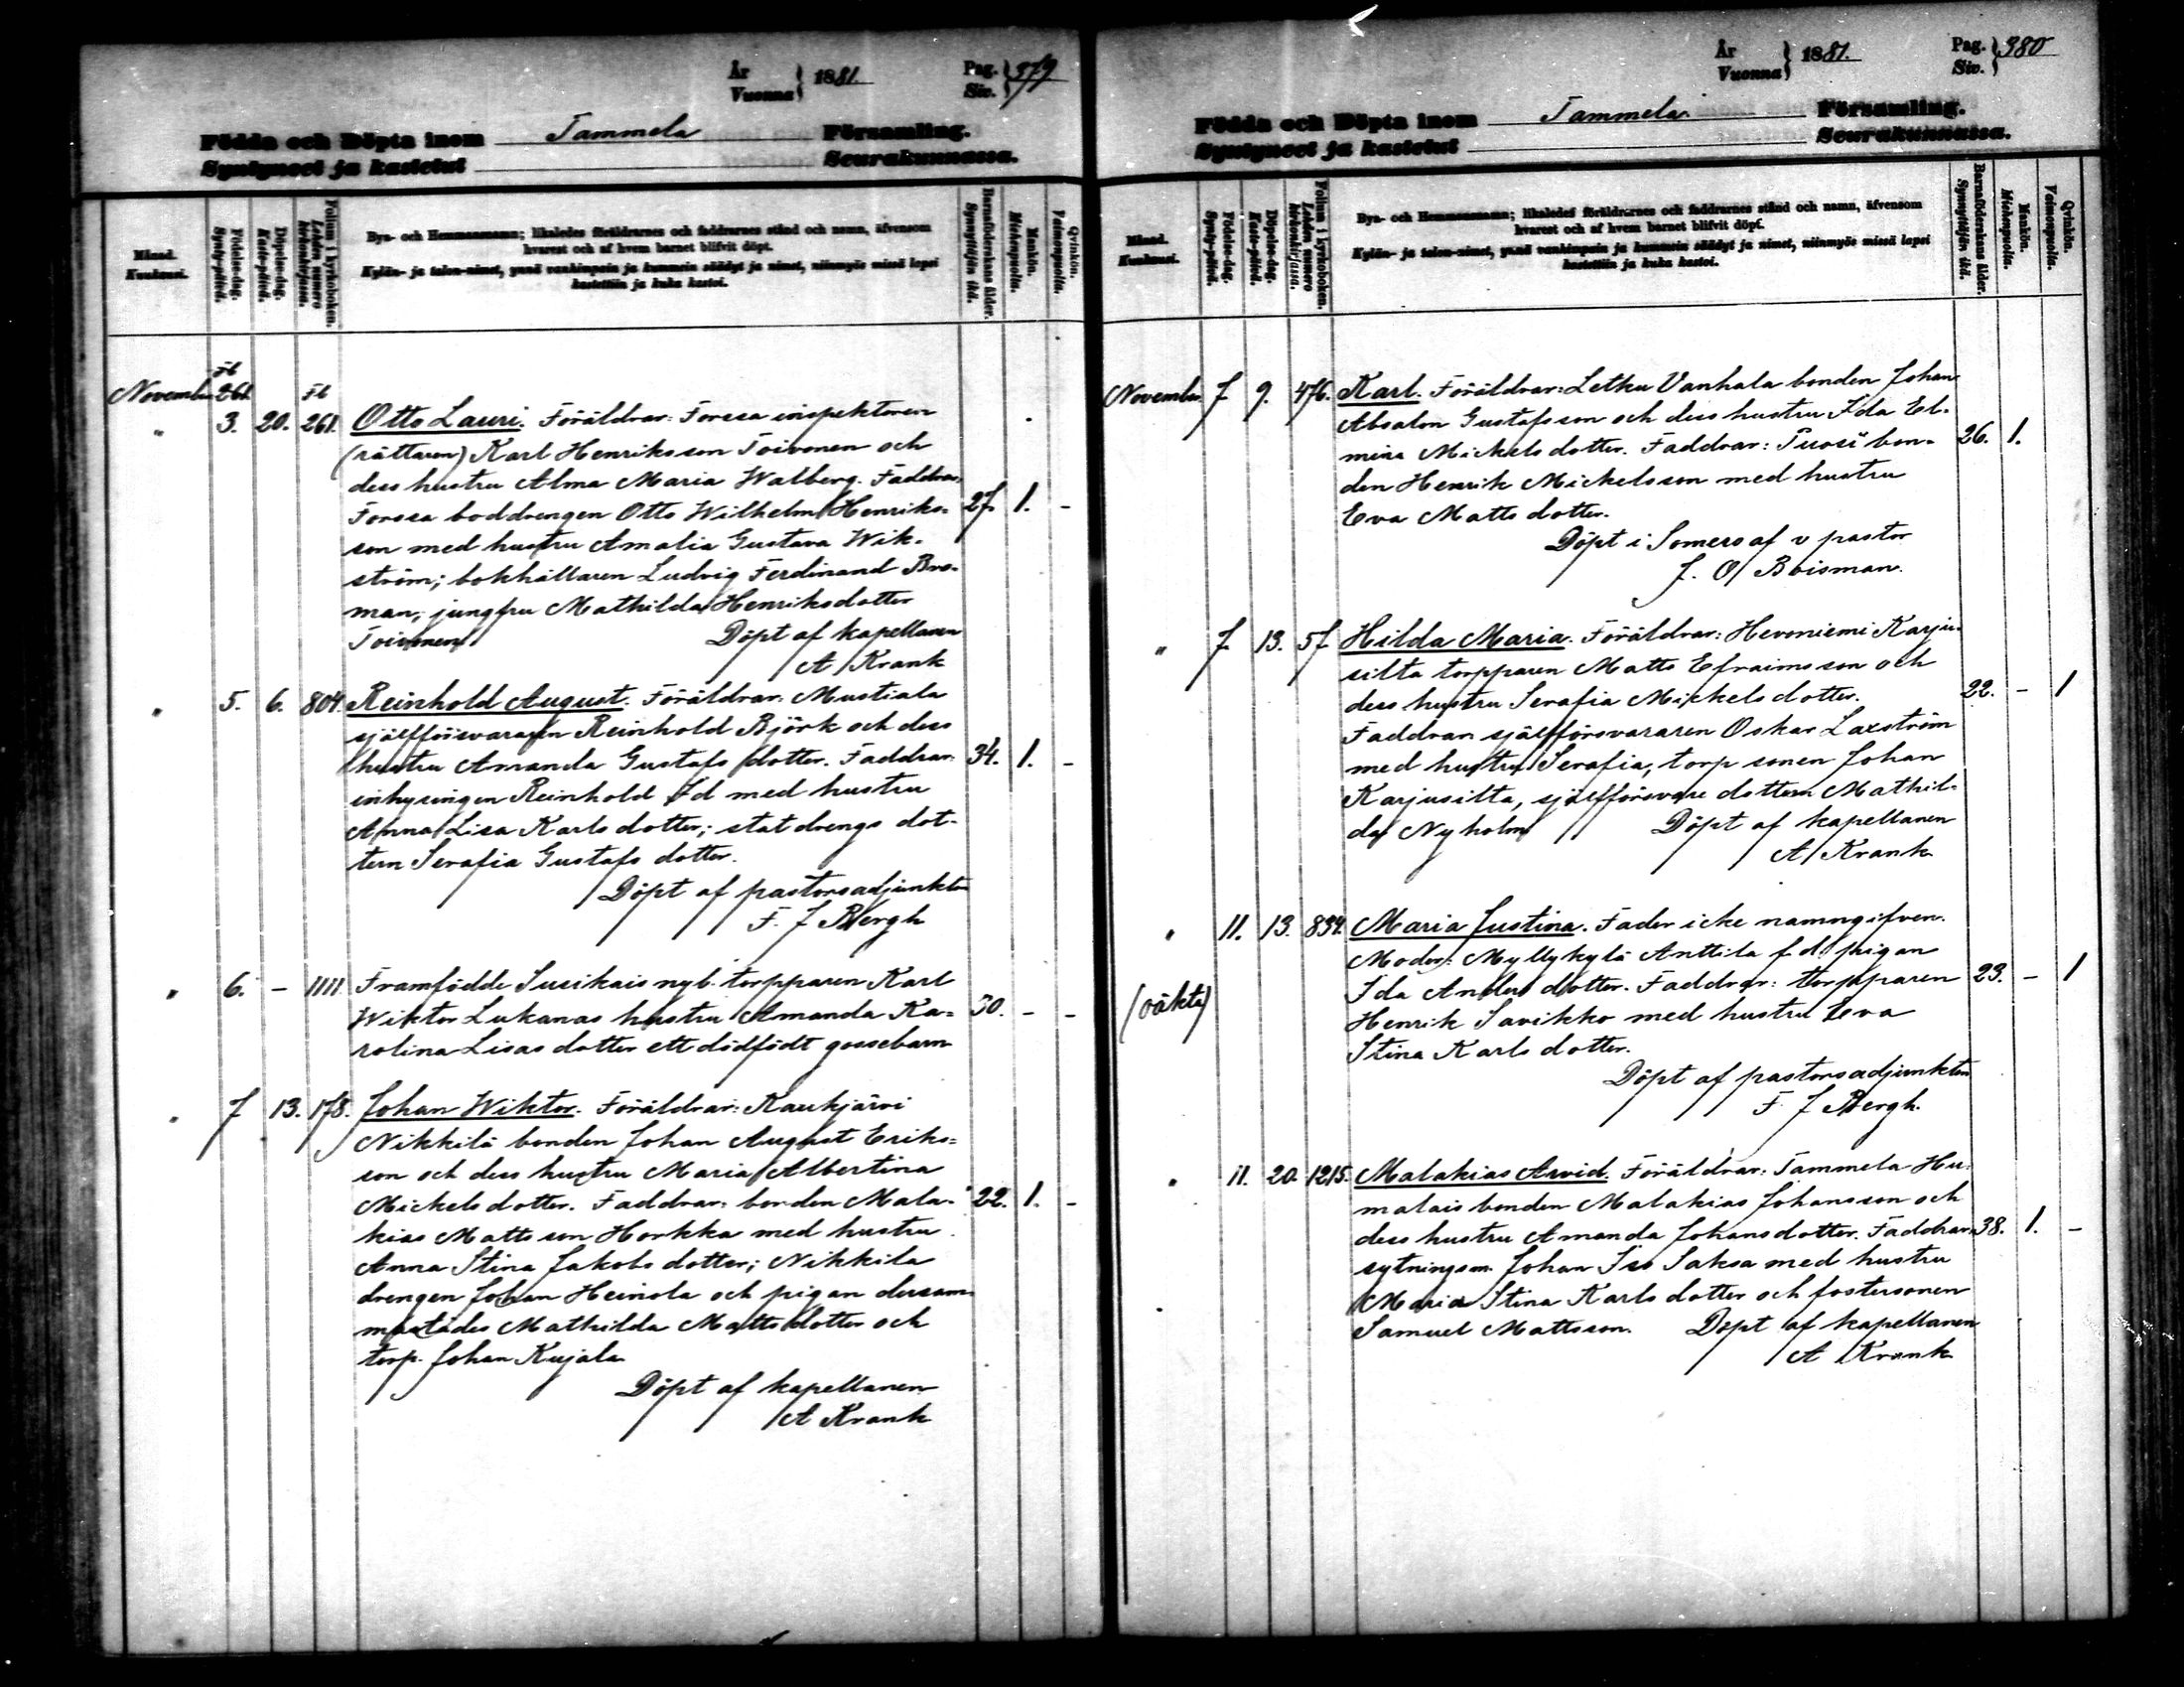 År
Vuonna } 1881.
Pag.
Siv. } 379
Födda och Döpta inom Tammela Församling.
Syntyneet ja kastetut Seurakunnassa.
Månad.
Kuukausi.
Födelse-dag.
Synty-päivä.
Döpelse-dag.
Kaste-päivä.
Folium i kyrkoboken.
Lehden numero kirkonkirjassa.
Bya- och Hemmansnamn; likaledes föräldrarnes och faddrarnes stånd och namn, äfvensom
hvarest och af hvem barnet blifvit döpt.
Kylän- ja talon-nimet, ynnä vanhimpain ja kummein säädyt ja nimet, niinmyös missä lapsi
kastettiin ja kuka kastoi.
Barnaföderskans ålder.
Synnyttäjän ikä.
Mankön.
Miehenpuolia.
Qvinkön.
Vaimonpuolia.
November 261.
" 3. 20. 261. Otto Lauri. Föräldrar: Forssa inspektoren
(rättaren) Karl Henriksson Toivonen och
dess hustru Alma Maria Walberg. Faddrar:
Forssa boddrengen Otto Wilhelm Henriks- 27. 1. -
son med hustru Amalia Gustava Wik-
ström; bokhållaren Ludvig Ferdinand Bro-
man, jungfru Mathilda Henriksdotter
Toivonen Döpt af kapellanen
A Krank
" 5. 6. 804. Reinhold August. Föräldrar: Mustiala
sjelfförsvararen Reinhold Björk och dess
hustru Amanda Gustafs dotter. Faddrar: 34. 1. -
inhysingen Reinhold Id med hustru
Anna Lisa Karls dotter; statdrengs dot-
tern Serafia Gustafs dotter.
Döpt af pastorsadjunkten
F. J Bergh
" 6. - 1111. Framfödde Susikais nyb. torpparen Karl
Wiktor Lukanas hustru Amanda Ka- 30. - -
rolina Lisas dotter ett dödfödt gossebarn
" 7 13. 178. Johan Wiktor. Föräldrar: Kaukjärvi
Nikkilä bonden Johan August Eriks-
son och dess hustru Maria Albertina
Mickels dotter. Faddrar: bonden Mala- 22. 1. -
kias Matts son Horkka med hustru
Anna Stina Jakobs dotter; Nikkila
drengen Johan Heinola och pigan dersam-
mastädes Mathilda Matts dotter och
torp. Johan Kujala
Döpt af kapellanen
A Krank
År
Vuonna } 1881.
Pag.
Siv. } 380
Födda och Döpta inom Tammela Församling.
Syntyneet ja kastetut Seurakunnassa.
Månad.
Kuukausi.
Födelse-dag.
Synty-päivä.
Döpelse-dag.
Kaste-päivä.
Folium i kyrkoboken.
Lehden numero kirkonkirjassa.
Bya- och Hemmansnamn; likaledes föräldrarnes och faddrarnes stånd och namn, äfvensom
hvarest och af hvem barnet blifvit döpt.
Kylän- ja talon-nimet, ynnä vanhimpain ja kummein säädyt ja nimet, niinmyös missä lapsi
kastettiin ja kuka kastoi.
Barnaföderskans ålder.
Synnyttäjän ikä.
Mankön.
Miehenpuolia.
Qvinkön.
Vaimonpuolia.
November. 7 9. 476. Karl. Föräldrar: Letku Vanhala bonden Johan
Absalon Gustafsson och dess hustru Ida El-
mina Mickels dotter. Faddrar: bon- 26. 1.
den Henrik Mickelsson med hustru
Eva Matts dotter.
Döpt i Somero af v pastor
J. O Boisman.
" 7. 13. 57 Hilda Maria. Föräldrar: Hevoniemi Karju-
silta torpparen Matts Efraimsson och
dess hustru Serafia Mickels dotter. 22. - 1
Faddrar sjelfförsvararen Oskar Laxström
med hustru Serafia, torp sonen Johan
Karjusilta, sjelfförsvare dottern Mathil-
da Nyholm Döpt af kapellanen
A Krank
" 11. 13. 834. Maria Justina. Fader icke namngifven.
Moder: Myllykylä Anttila f.d. pigan
Ida Anders dotter. Faddrar: torpparen 23. - 1
(oäkta) Henrik Savikko med hustru Eva
Stina Karls dotter.
Döpt af pastorsadjunkten
F. J Bergh.
" 11. 20. 1215. Malakias Arvid. Föräldrar: Tammela Hu-
malais bonden Malakias Johansson och
dess hustru Amanda Johansdotter. Faddrar: 38. 1. -
sytningsm. Johan Iso Saksa med hustru
Maria Stina Karls dotter och fostersonen
Samuel Mattsson. Döpt af kapellanen
A Krank